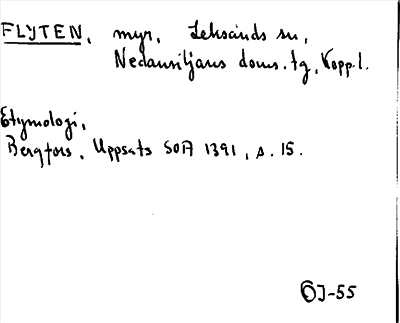 FLYTEN, myr, Leksands sn,
Nedansiljans doms.tg, Kopp.l.
Etymologi,
Bergfors, Uppsats SOA 1391, s. 15.
OJ-55